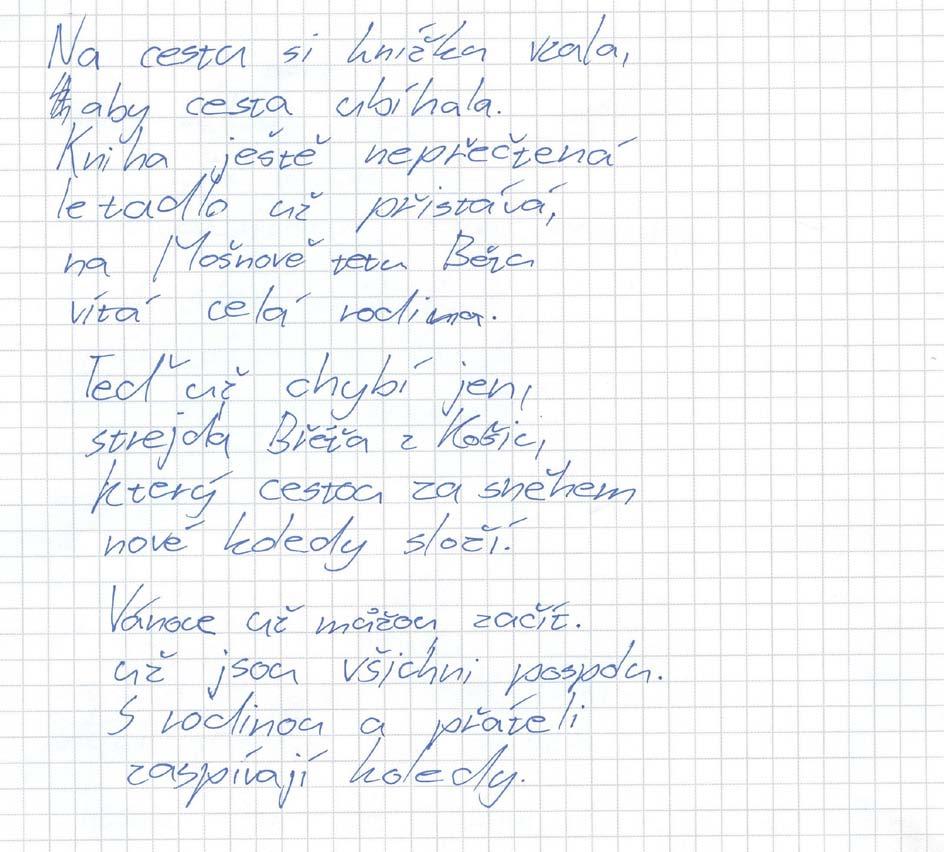 Na cestu si knížku vzala,
aby cesta ubíhala.
Kniha ještě nepřečtená
letadlo už přistává,
na Mošnově tetu Běžu
vítá celá rodina.
Teď už chybí jen,
strejda Břéťa z Košic,
který cestou za sněhem
nové koledy složí.
Vánoce už můžou začít.
už jsou všichni pospolu.
S rodinou a přáteli
zaspívají koledy.